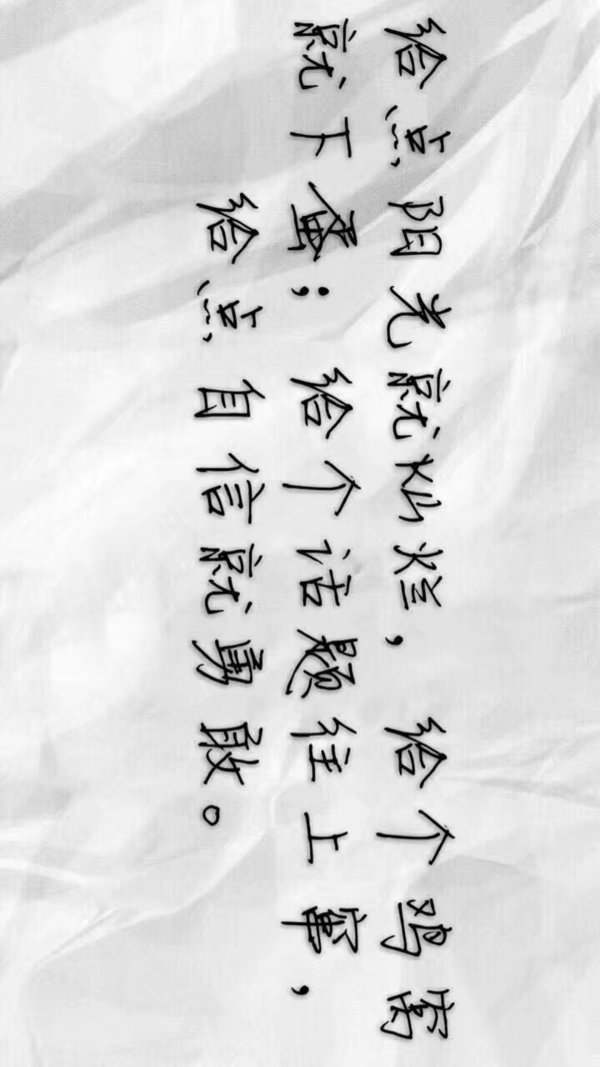 给点阳光就灿烂，给个鸡窝
就下蛋；给个话题往上窜，
给点自信就勇敢。